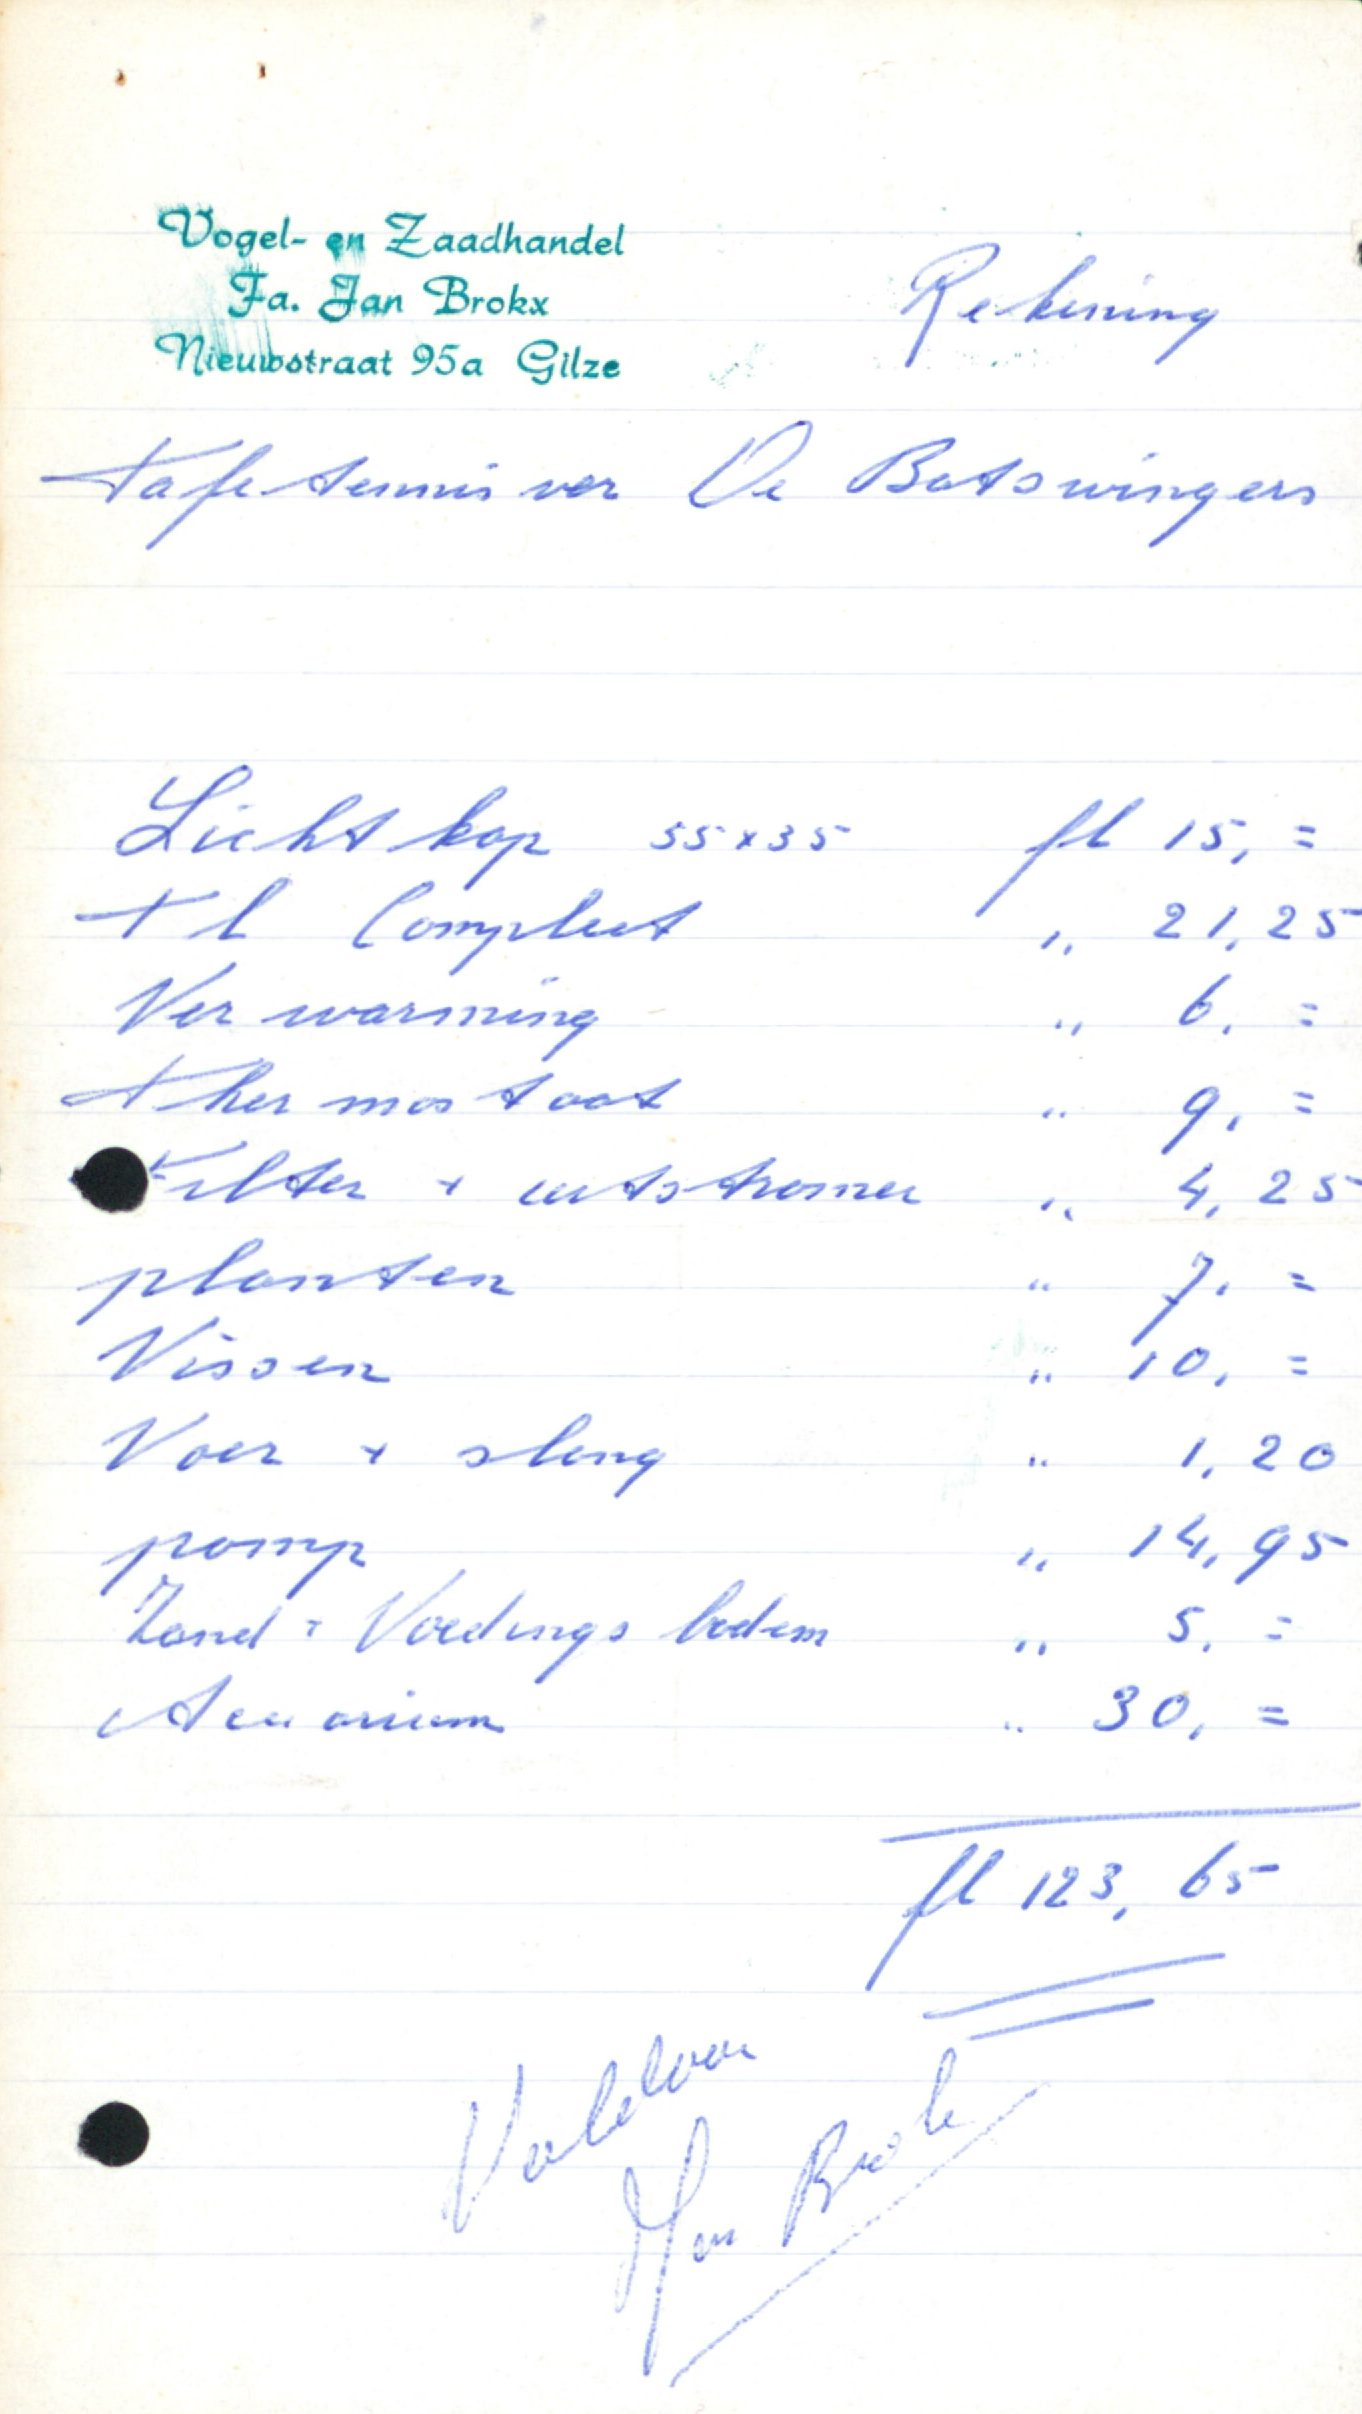 Vogel- en Zaadhandel
Fa. Jan Brokx
Nieuwstraat 95a Gilze
Rekening
Tafeltennis ver De Batswingers
Lichtkap 55x35 fl 15,=
Tl Compleet ,, 21,25
Verwarming ,, 6,=
Thermostaat ,, 9,=
Filter + uitstromer ,, 4,25
planten ,, 7,=
Vissen ,, 10,=
Voer + slang ,, 1,20
pomp ,, 14,95
Zand + Voedingsbodem ,, 5,=
Acuarium ,, 30,=
fl 123,65
Voldaan
Jan Brokx